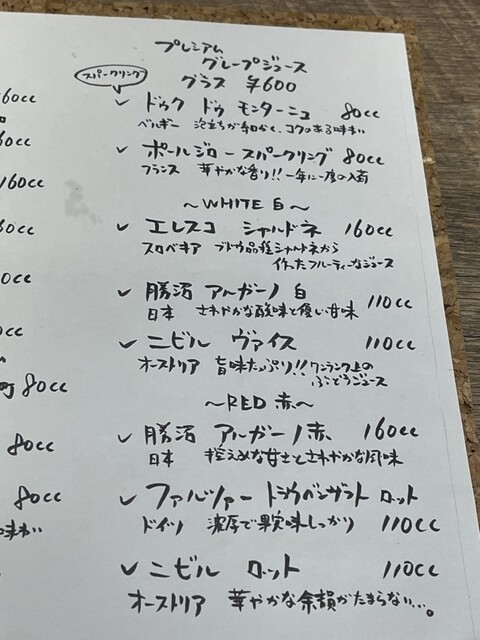 プレミアム
グレープジュース
グラス ¥600
スパークリング
✓ ドゥク ドゥ モンターニュ 80cc
ベルギー 泡立ちが和かく、コクのある味わい
✓ ポールジロースパークリング 80cc
フランス 華やかな香り!! 一年に一度の入荷
~WHITE 白~
✓ エレスコ シャルドネ 160cc
スロベキア ブドウ品種シャルドネから
作ったフルーティーなジュース
✓ 勝沼 アルガーノ 白 110cc
日本 さわやかな酸味と優しい甘味
✓ ニビル ヴァイス 110cc
オーストリア 旨味たっぷり!! ワンランク上の
ぶどうジュース
~RED 赤~
✓ 勝沼 アルガーノ 赤 160cc
日本 控えめな甘さとさわやかな風味
✓ ファルツァー トラウベンザフト ロット
ドイツ 濃厚で果実味しっかり 110cc
✓ ニビル ロット 110cc
オーストリア 華やかな余韻がたまらない…。
160cc
160cc
80cc
80cc
80cc
味わい